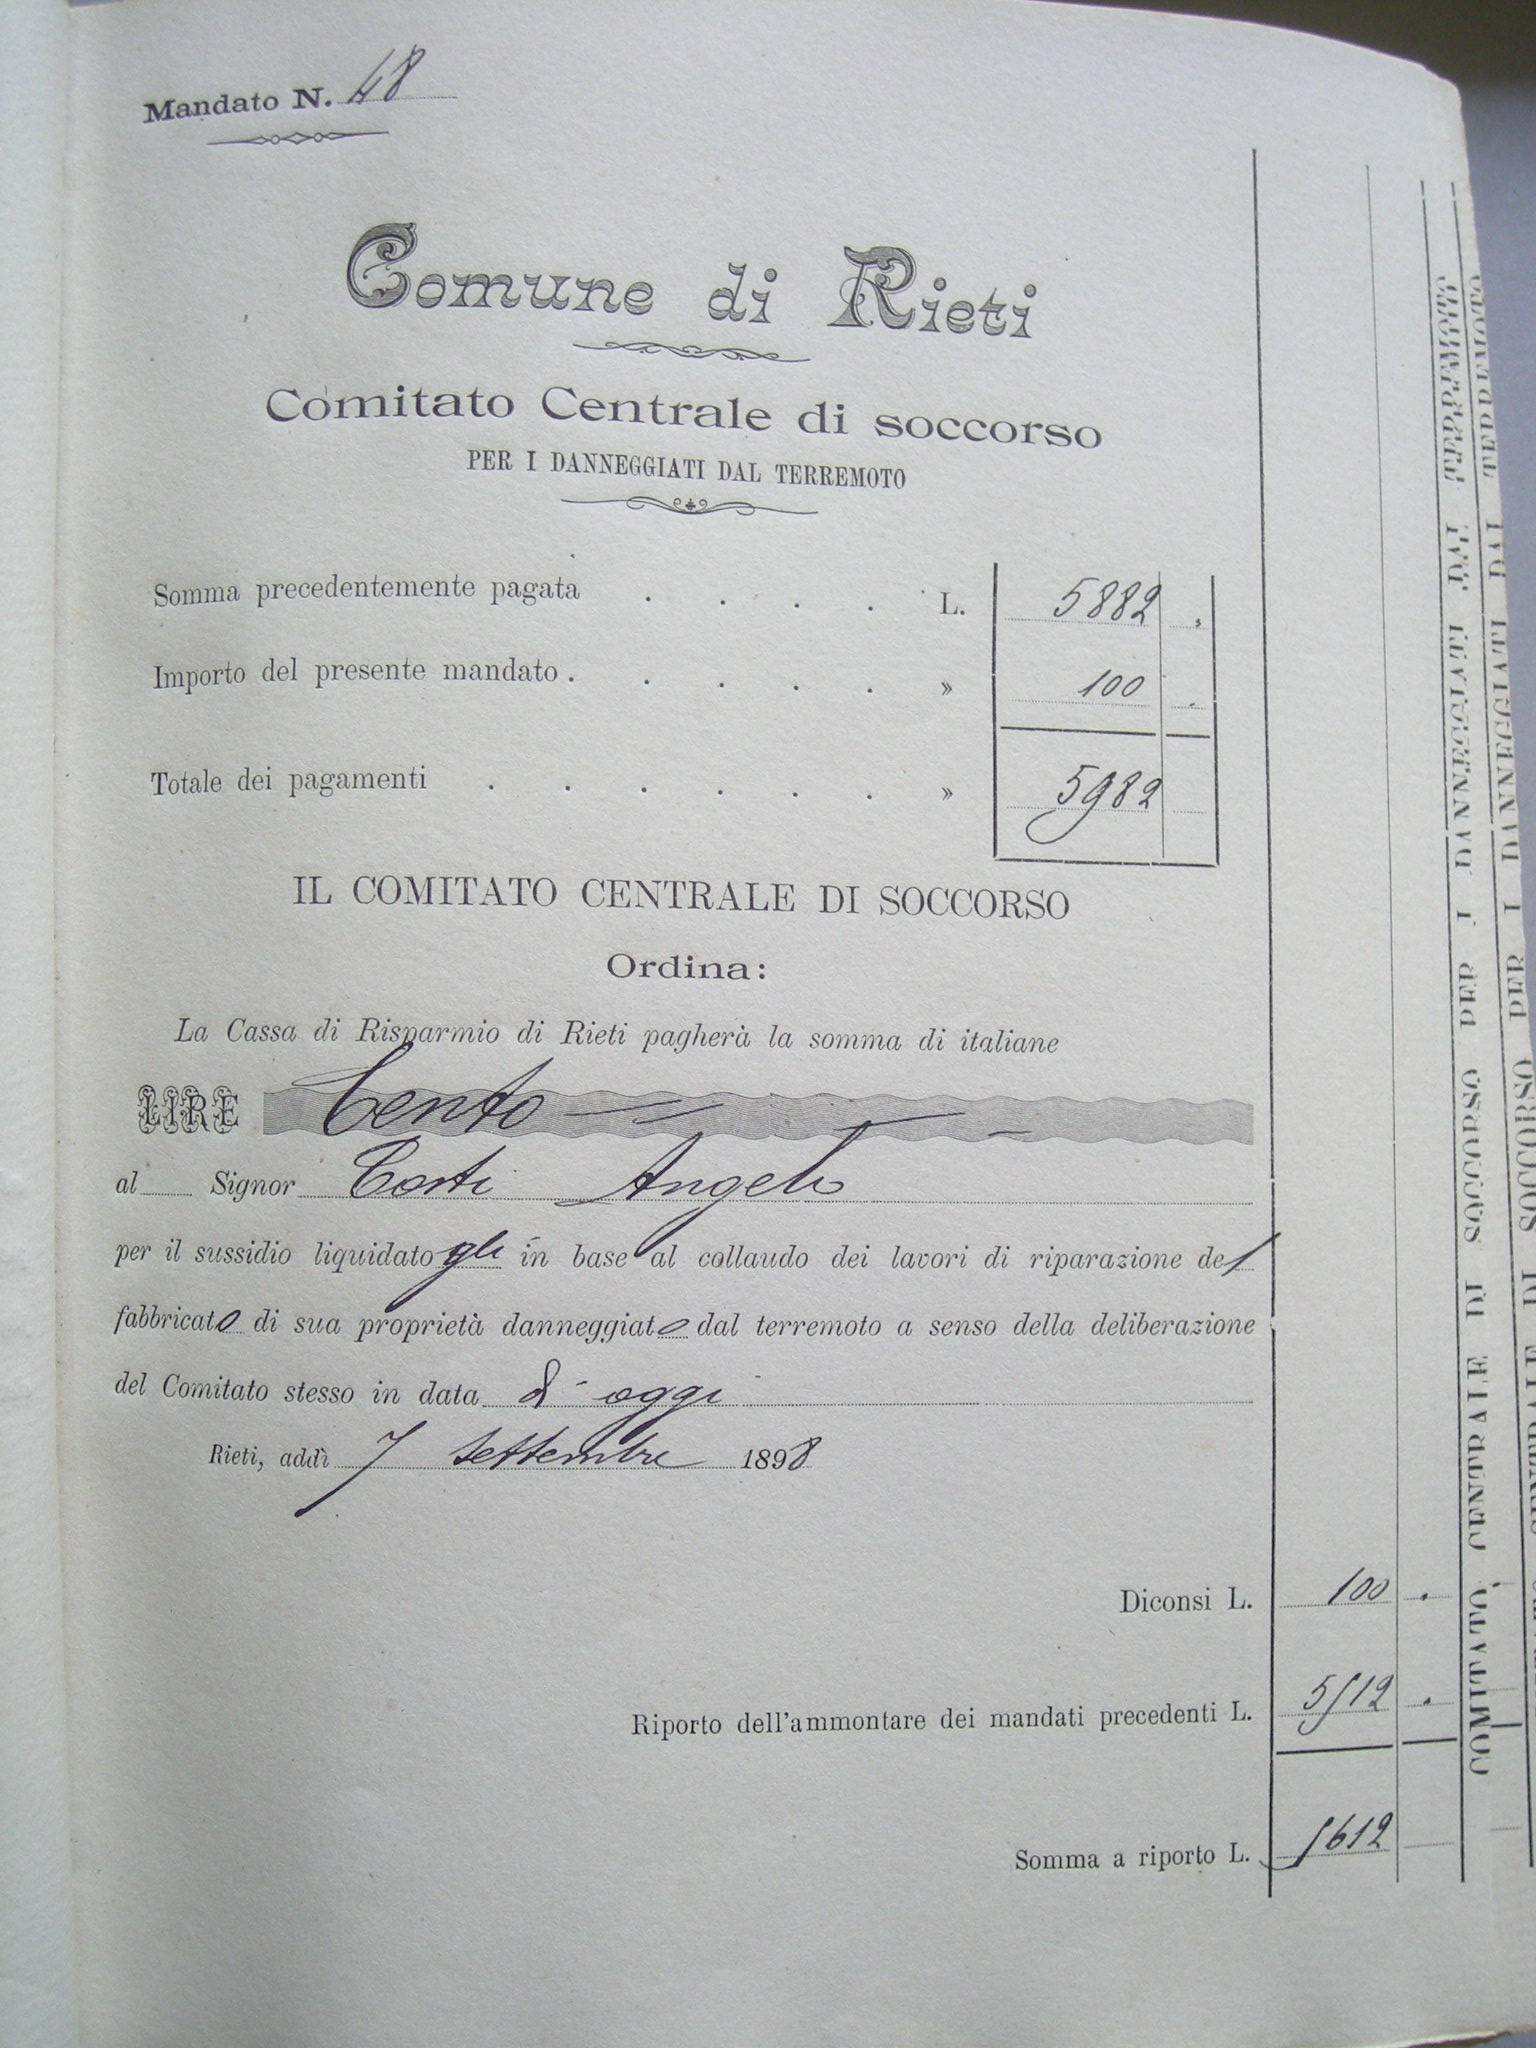 Mandato N. 48
Comune di Rieti
Comitato Centrale di soccorso
PER I DANNEGGIATI DAL TERREMOTO
Somma precedentemente pagata . . . . L. 5882
Importo del presente mandato . . . . . » 100
Totale dei pagamenti . . . . . . » 5982
IL COMITATO CENTRALE DI SOCCORSO
Ordina:
La Cassa di Risparmio di Rieti pagherà la somma di italiane
LIRE Cento
al Signor Angelo
per il sussidio liquidato gli in base al collaudo dei lavori di riparazione del
fabbricato di sua proprietà danneggiato dal terremoto a senso della deliberazione
del Comitato stesso in data d'oggi
Rieti, addì 7 Settembre 1898
Diconsi L. 100
Riporto dell'ammontare dei mandati precedenti L.
Somma a riporto L.
COMITATO CENTRALE DI SOCCORSO PER I DANNEGGIATI DAL TERREMOTO
DI SOCCORSO PER I DANNEGGIATI DAL TERREMOTO